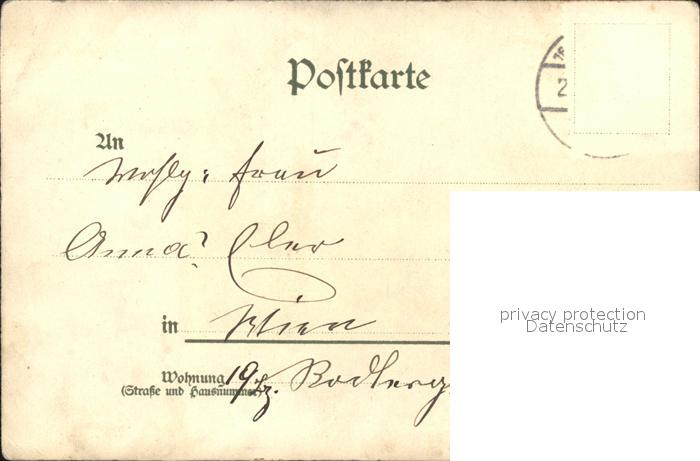 Postkarte
An
Wohlg: Frau
Anna
in Wien
Wohnung 19/
(Straße und Hausnummer)
privacy protection
Datenschutz